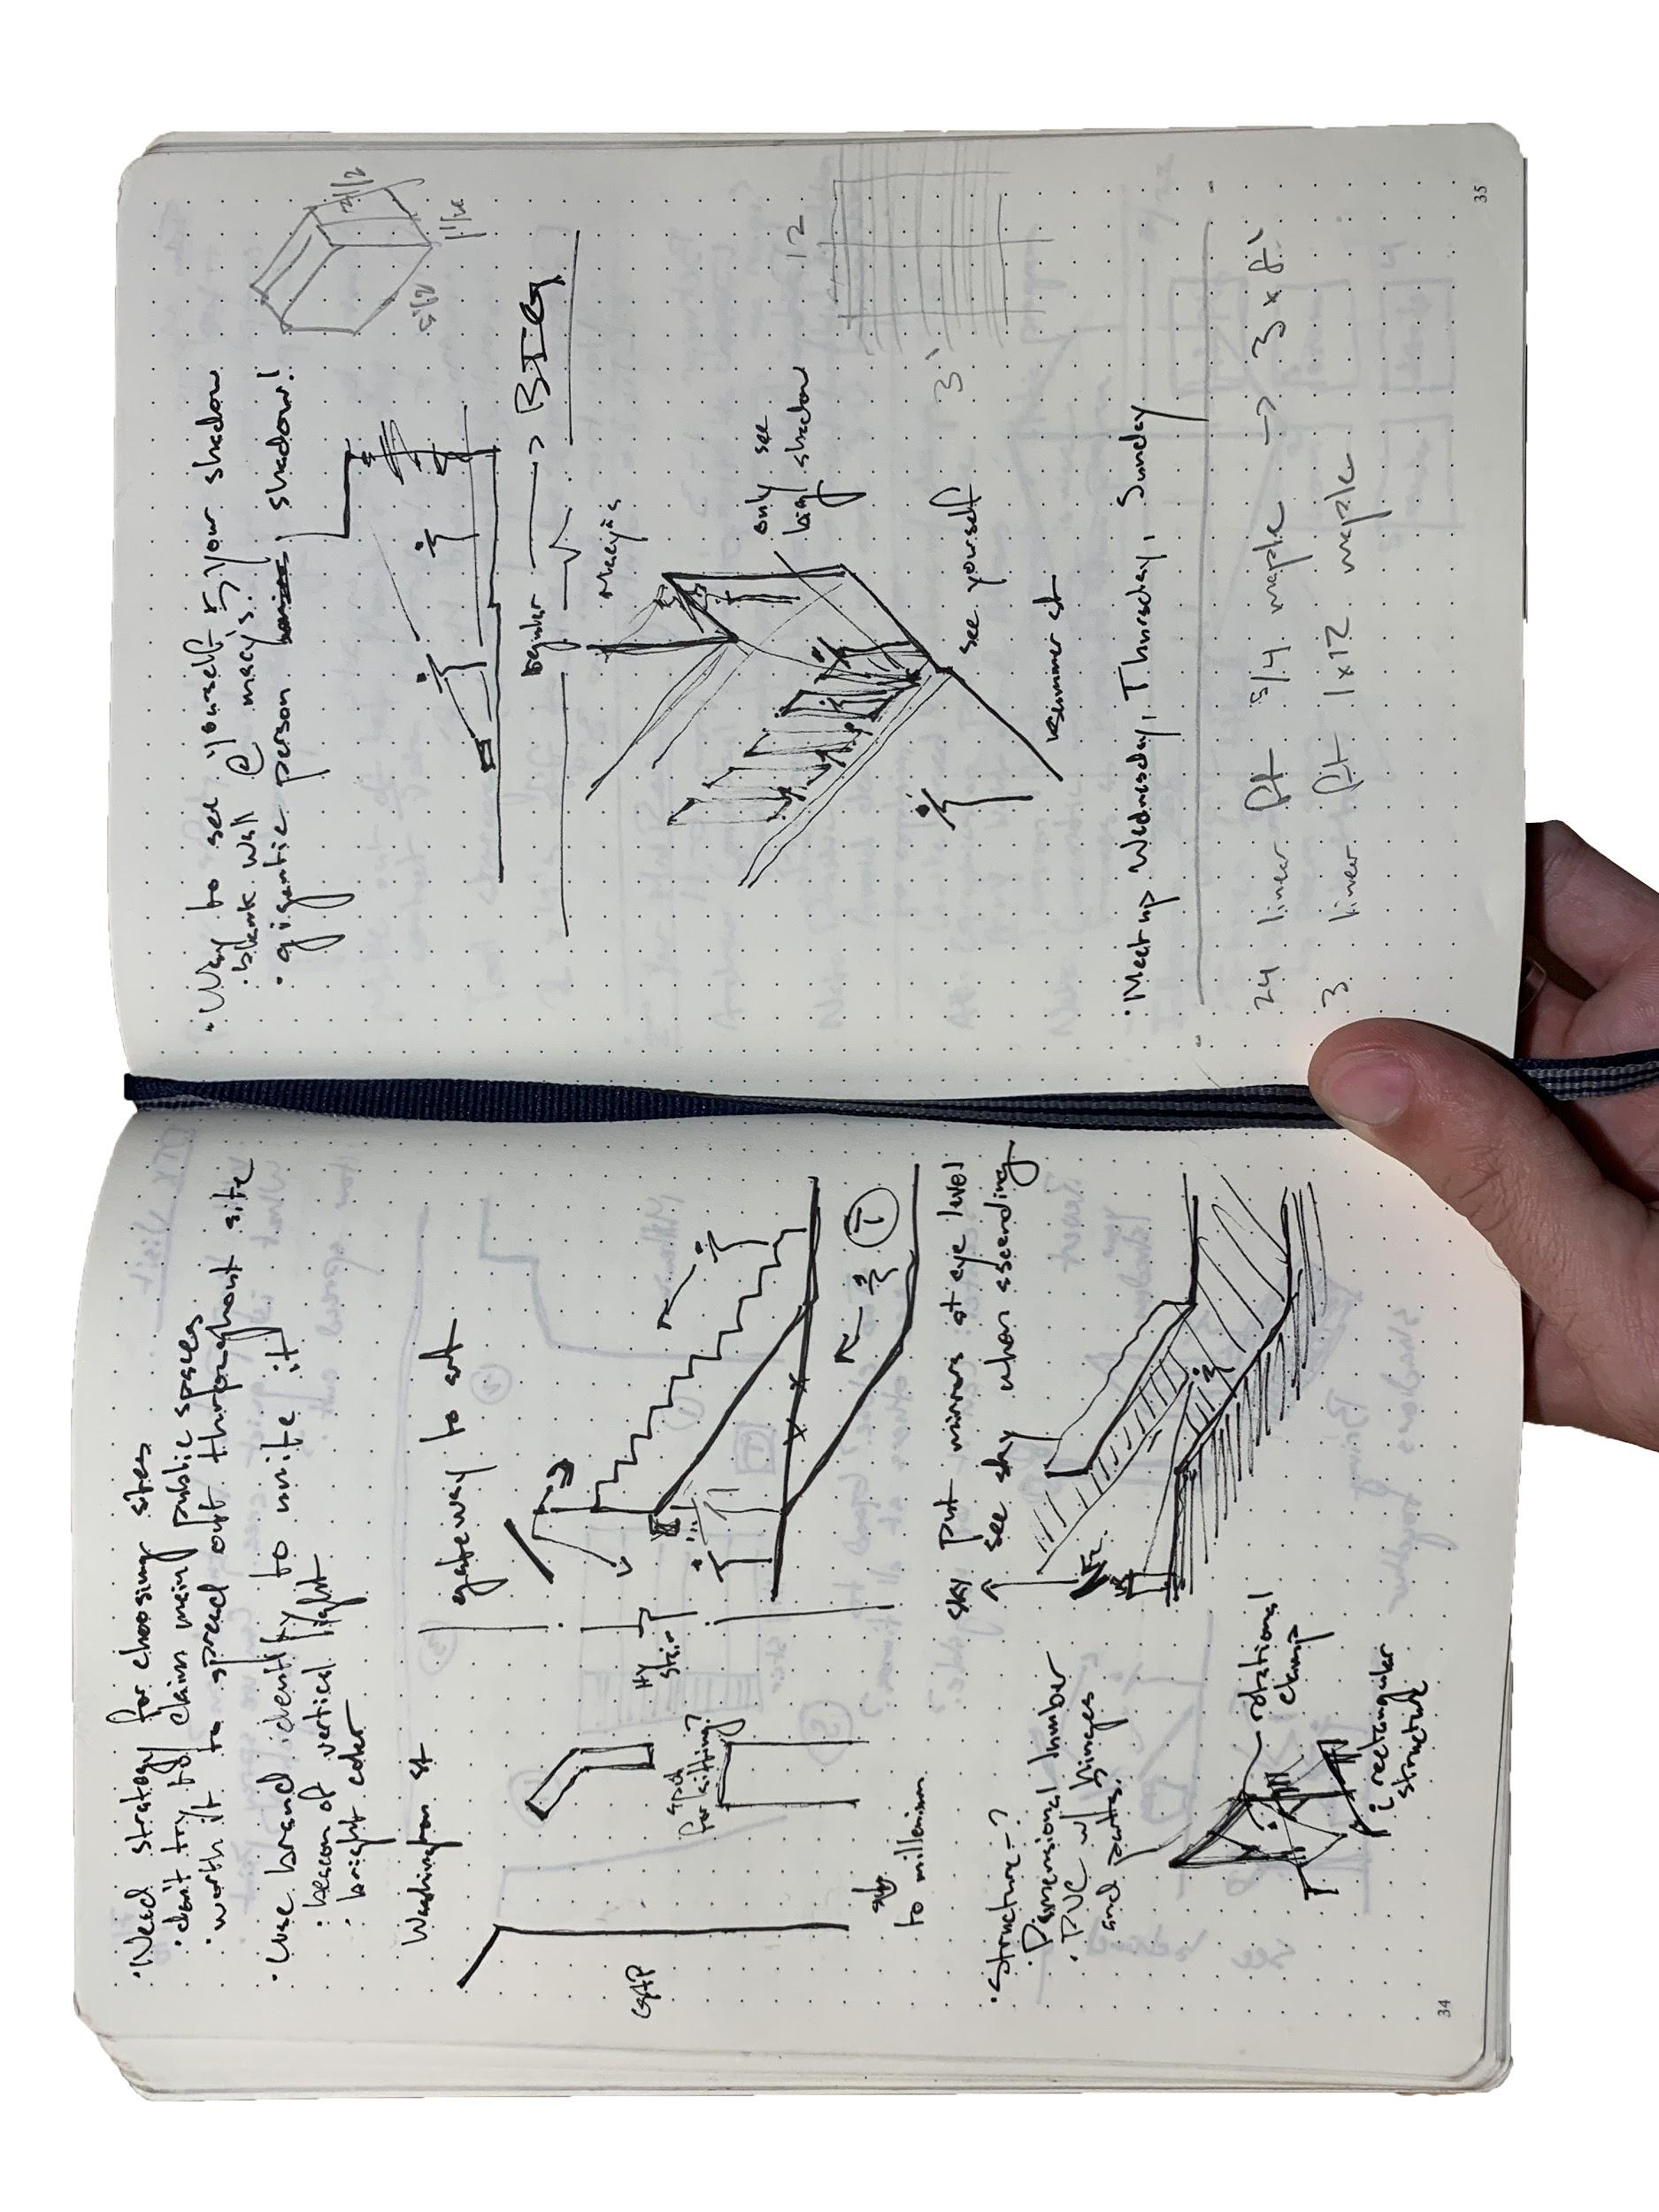 · Need strategy for choosing sites
· don't try to claim main public spaces
· worth it to spread out throughout site
· Use brand identity to unite it
· beacon of vertical light
· bright color
Washington st
gateway to art
GAP
spot
for sitting?
stair
T
to millenium
sky
put mirrors at eye level
see sky when ascending
· Structure-?
· Dimensional lumber
· PVC w/ hinges
and
rotational
clamp
rectangular
structure
34
· Way to see yourself & your shadow
· blank wall @ macy's?
· gigantic person shadow!
3 1/2
1 1/2
5 1/2
regular → BIG
Macy's
only see
big shadow
see yourself
Summer st
12
3'
· Meet up Wednesday, Thursday, Sunday
24 linear ft 5/4 maple → 3 x 8'
3 linear ft 1x12 maple
35